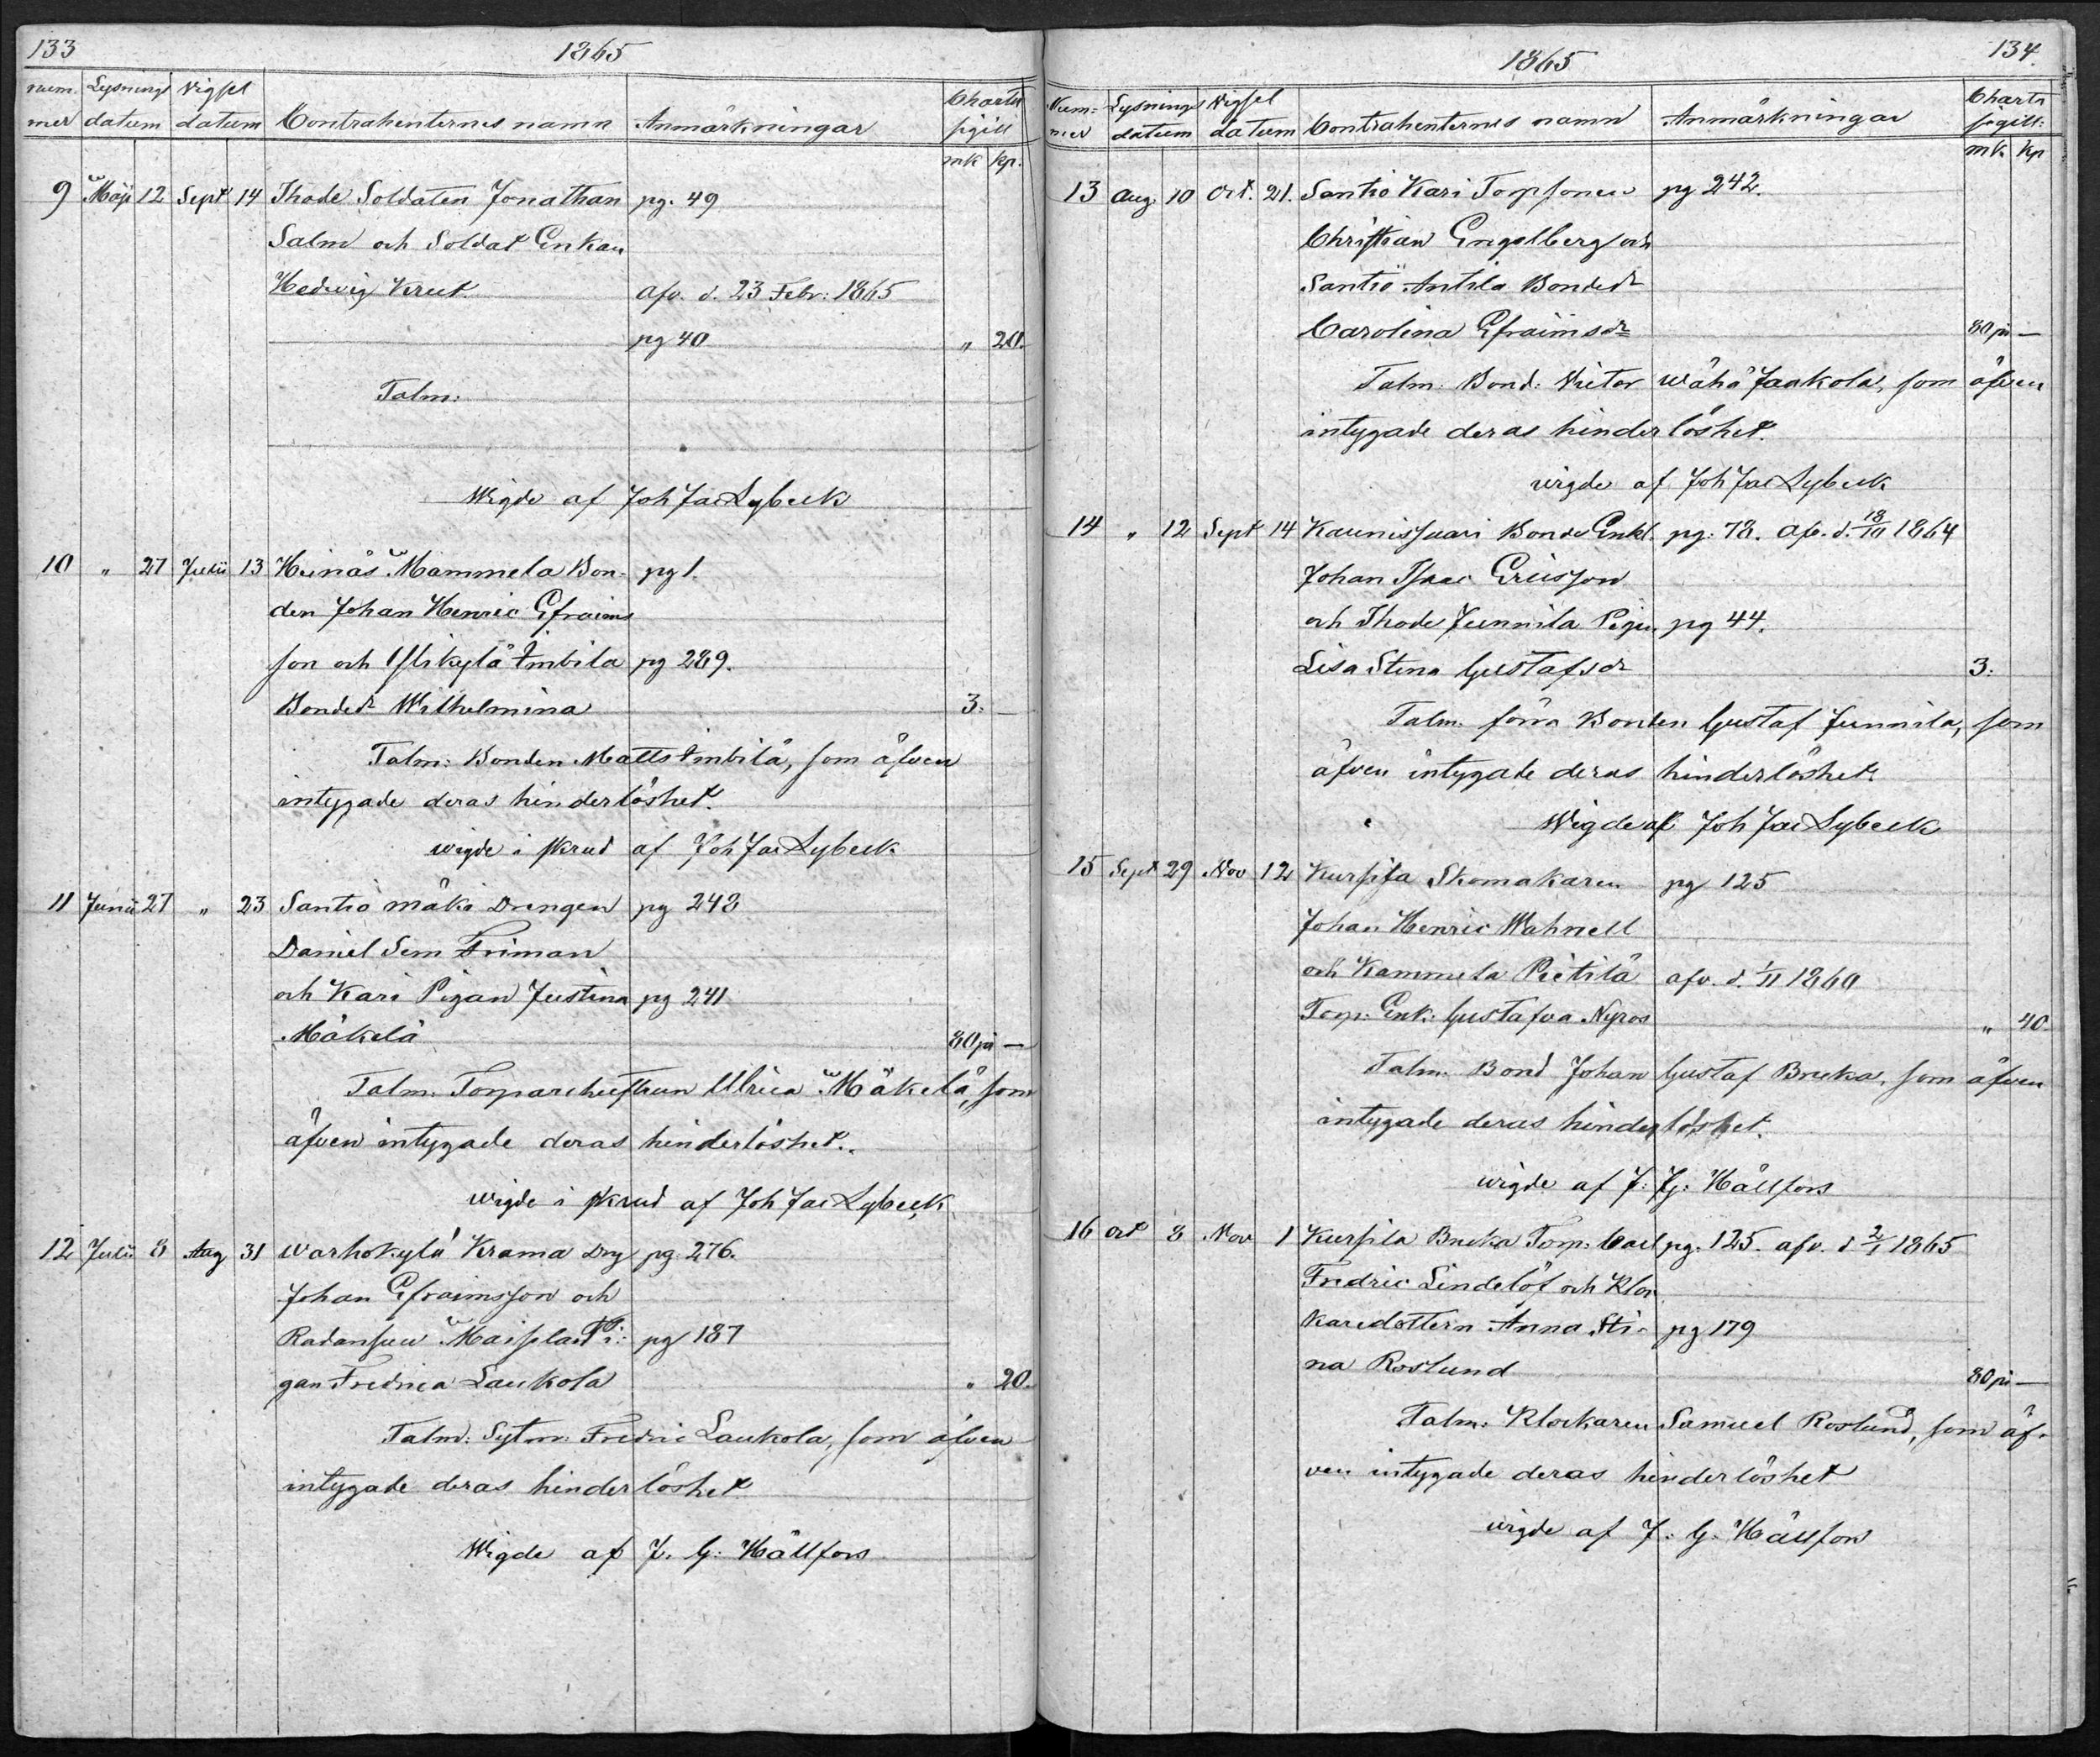 133
1865
num. Lysnings Vigsel Charta
mer datum datum Contrahenternes namn Anmärkningar sigill
mk kp.
9 Maji 12 Sept 14 Thode Soldaten Jonathan pg. 49
Salm och Soldat Enkan
Hedwig Krut. afv. d. 23 Febr: 1865
pg 40 " 20.
Talm:
Wigde af Joh Jac Lybeck
10 " 27 Julii 13 Heinäs Mammela Bon- pg 1.
den Johan Henric Efraims
son och Ylikylä Imbila pg 289.
Bondedr Wilhelmina 3. —
Talm: Bonden Matts Imbilä, som äfven
intygade deras hinderlöshet.
wigde i skrud af Joh Jac Lybeck
11 Junii 27 " 23 Santio mäki Drengen pg 248
Daniel Sem Friman
och Kari Pigan Justina pg 241
Mäkelä 80 pi —
Talm: Torparehustrun Ulrica Mäkelä, som
äfven intygade deras hinderlöshet.
wigde i skrud af Joh Jac Lybeck
12 Julii 8 Aug 31 Warhokylä Krama Drg pg. 276.
Johan Efraimsson och
Radansuu Maisela Pi: pg 187
gan Fredrica Laukola " 20.
Talm: Sytm: Fredric Laukola, som äfven
intygade deras hinderlöshet
Wigde af J. G. Hällfors
134.
1865
Num- Lysnings Vigsel Charta
mer datum datum Contrahenternes namn Anmärkningar sigill:
mk kp
13 Aug. 10 Oct. 21. Santio Kari Torpsonen pg 242.
Christian Engelberg och
Santio Antila Bondedr
Carolina Efraimsdr 80 pi —
Talm: Bond: Victor Wähä Jaakola, som äfven
intygade deras hinderlöshet.
wigde af Joh Jac Lybeck
14 " 12 Sept 14 Kaunissaari Bonde Enkl. pg. 78. afv. d. 18/10 1864
Johan Isaac Ericsson
och Thode Junnila Pigan pg 44.
Lisa Stina Gustafsdr 3.
Talm. förra Bonden Gustaf Junnila, som
äfven intygade deras hinderlöshet.
Wigde af Joh Jac Lybeck
15 Sept 29 Nov 12 Kursila Skomakaren pg 125
Johan Henric Wahnell
och Kammela Pietilä afv. d. 1/11 1860
Torp: Enk: Gustafva Nyros " 40.
Talm. Bond Johan Gustaf Bruka, som äfven
intygade deras hinderlöshet.
wigde af J. G. Hällfors
16 Oct 8 Nov 1 Kursila Bruka Torp: Carl pg. 125. afv. d 2/1 1865
Fredric Lindelöf och Kloc
karedottern Anna Sti- pg 179
na Roslund 80 pi —
Talm: Klockaren Samuel Roslund, som äf-
ven intygade deras hinderlöshet
wigde af J. G. Hällfors